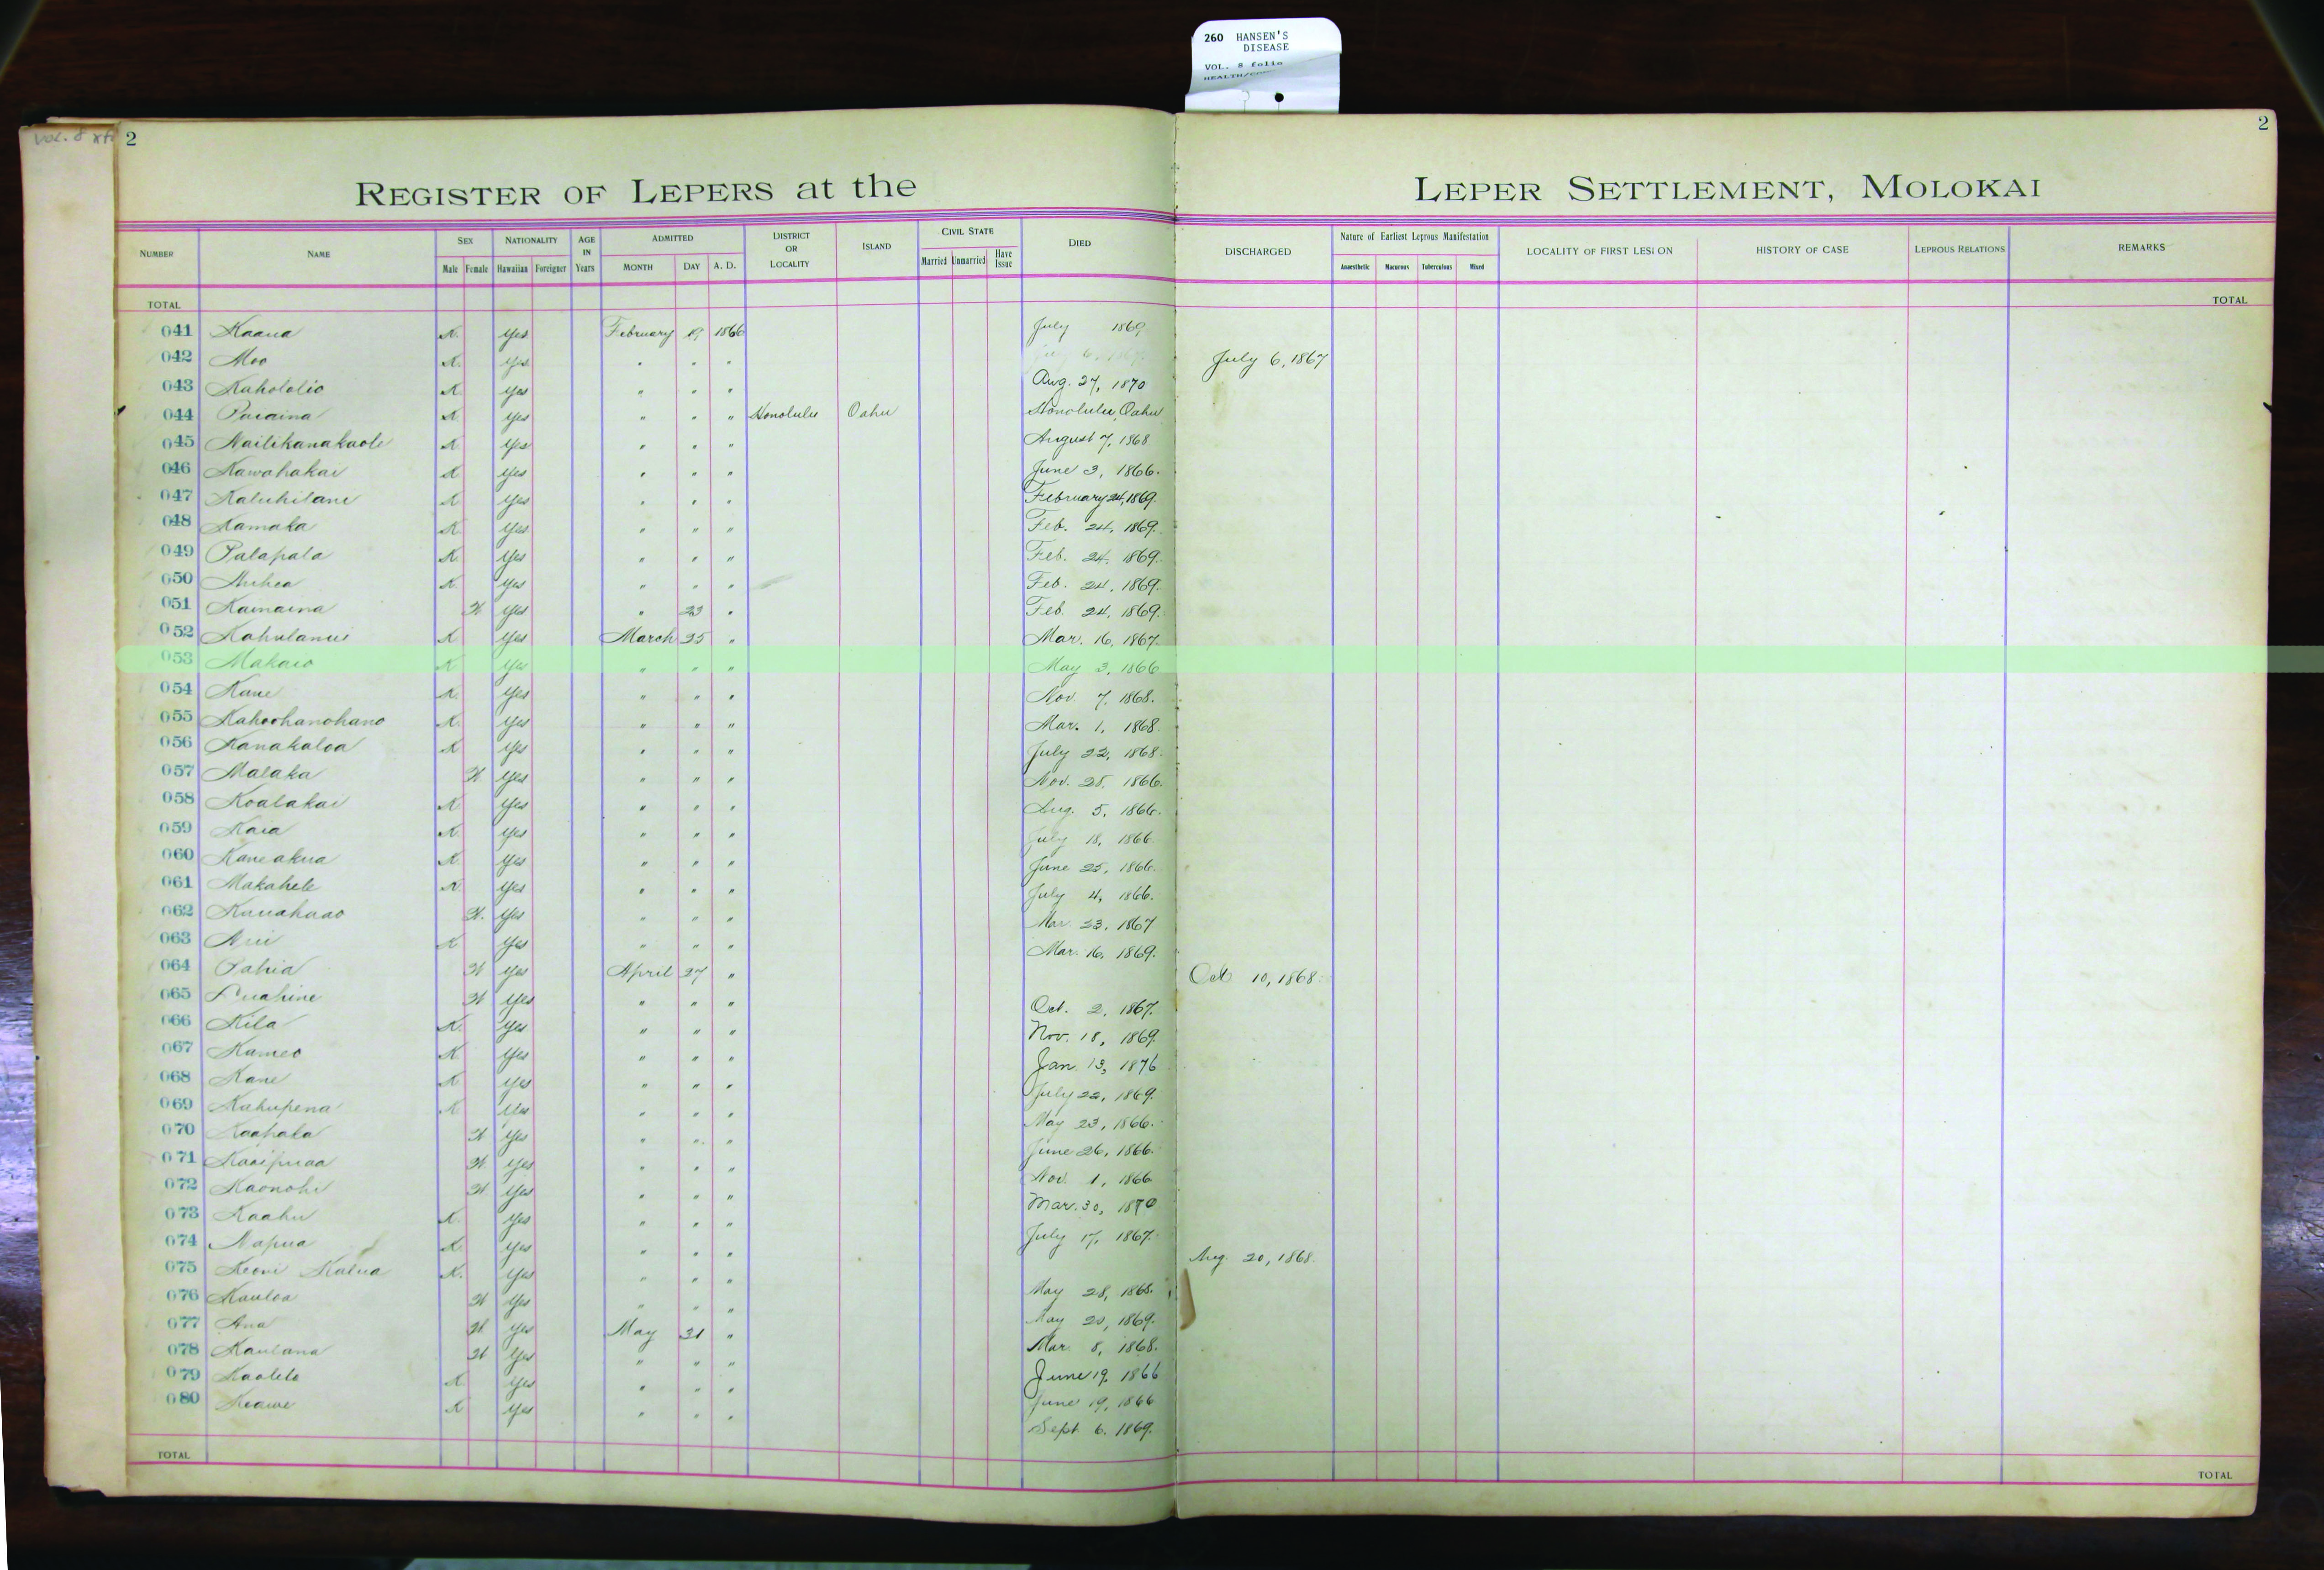 260 HANSEN'S
DISEASE
VOL. 8 folio
Vol. 8
2
2
REGISTER OF LEPERS at the
LEPER SETTLEMENT, MOLOKAI
NUMBER NAME SEX Male Female NATIONALITY Hawaiian Foreigner AGE IN Years ADMITTED MONTH DAY A. D. DISTRICT OR LOCALITY ISLAND CIVIL STATE Married Unmarried Have Issue DIED DISCHARGED Nature of Earliest Leprous Manifestation Anaesthetic Macurous Tuberculous Mixed LOCALITY OF FIRST LESION HISTORY OF CASE LEPROUS RELATIONS REMARKS
TOTAL TOTAL
041 Kaaua K. Yes February 19 1866 July 1869
042 Moo K. Yes " " " July 6, 1867
043 Kahololio K Yes " " " Aug. 27, 1870
044 K Yes " " " Honolulu Oahu Honolulu, Oahu
045 K Yes " " " August 7, 1868
046 Kawahakai K Yes " " " June 3, 1866.
047 K Yes " " " February 24, 1869.
048 Kamaka K Yes " " " Feb. 24, 1869.
049 Palapala K. Yes " " " Feb. 24, 1869.
050 K. Yes " " " Feb. 24, 1869.
051 Kamaina W Yes " 23 " Feb. 24, 1869.
052 K Yes March 25 " Mar. 16, 1867.
053 Makaio K Yes " " " May 3, 1866
054 Kane K. Yes " " " Nov. 7, 1868.
055 Kahoohanohano K. Yes " " " Mar. 1, 1868.
056 Kanakaloa K Yes " " " July 22, 1868.
057 Malaka W Yes " " " Nov. 28, 1866.
058 Koalakai K Yes " " " Aug. 5, 1866.
059 Kaia K. Yes " " " July 18, 1866.
060 Kaneakua K Yes " " " June 25, 1866.
061 Makahele K Yes " " " July 4, 1866.
062 W. Yes " " " Mar. 23, 1867
063 K Yes " " " Mar. 16, 1869.
064 Pahia W Yes April 27 " Oct 10, 1868.
065 Luahine W Yes " " " Oct. 2, 1867.
066 Kila K. Yes " " " Nov. 18, 1869.
067 Kameo K Yes " " " Jan 13, 1876
068 Kane K Yes " " " July 22, 1869.
069 Kahupena K Yes " " " May 23, 1866.
070 Kaahala W Yes " " " June 26, 1866.
071 Kaaipuaa W. Yes " " " Nov. 1, 1866
072 Kaonohi W Yes " " " Mar. 30, 1870
073 Kaahu K. Yes " " " July 17, 1867.
074 Napua K Yes " " " Aug. 20, 1868.
075 Keoni Kalua K. Yes " " " May 28, 1868.
076 Kauloa W Yes " " " May 20, 1869.
077 Ana W. Yes May 31 " Mar. 8, 1868.
078 Kaulana W Yes " " " June 19, 1866
079 Kaolelo K Yes " " " June 19, 1866
080 Keawe K Yes " " " Sept. 6. 1869.
TOTAL TOTAL